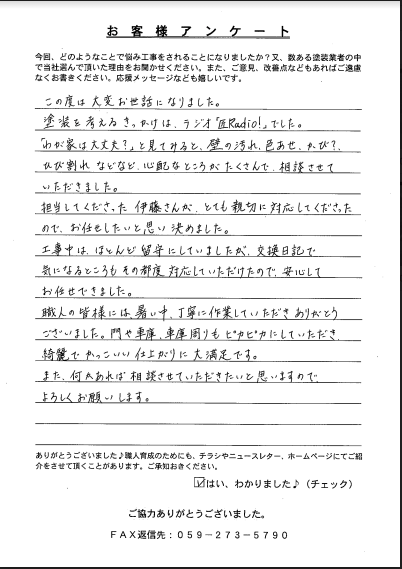 お客様アンケート
今回、どのようなことで悩み工事をされることになりましたか?又、数ある塗装業者の中
で当社選んで頂いた理由をお聞かせください。また、ご意見、改善点などもあればご遠慮
なくお書きください。応援メッセージなども嬉しいです。
この度は大変お世話になりました。
塗装を考えるきっかけは、ラジオ「匠Radio!」でした。
「わが家は大丈夫?」と見てみると、壁の汚れ、色あせ、かび?、
ひび割れ などなど、心配なところが たくさんで、相談させて
いただきました。
担当してくださった 伊藤さんが、とても親切に対応してくださった
ので、お任せしたいと思い 決めました。
工事中は、ほとんど留守にしていましたが、交換日記で
気になるところも その都度 対応していただけたので、安心して
お任せできました。
職人の皆様には、暑い中、丁寧に作業していただき ありがとう
ございました。門や車庫、車庫周りも ピカピカにしていただき、
綺麗で かっこいい 仕上がりに 大満足です。
また、何かあれば 相談させていただきたいと思いますので、
よろしくお願いします。
ありがとうございました♪職人育成のためにも、チラシやニュースレター、ホームページにてご紹
介をさせて頂くことがあります。ご承知おきください。
☑はい、わかりました♪(チェック)
ご協力ありがとうございました。
FAX返信先:059-273-5790